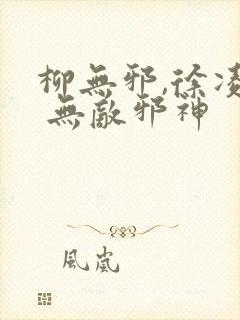 柳無邪,徐凌
無敵邪神
風嵐